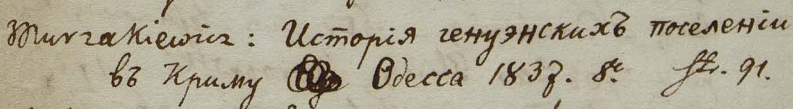 Murzakiewicz: Исторія генуэнскихъ поселеніи
въ Криму Одесса 1837. 8º Str. 91.